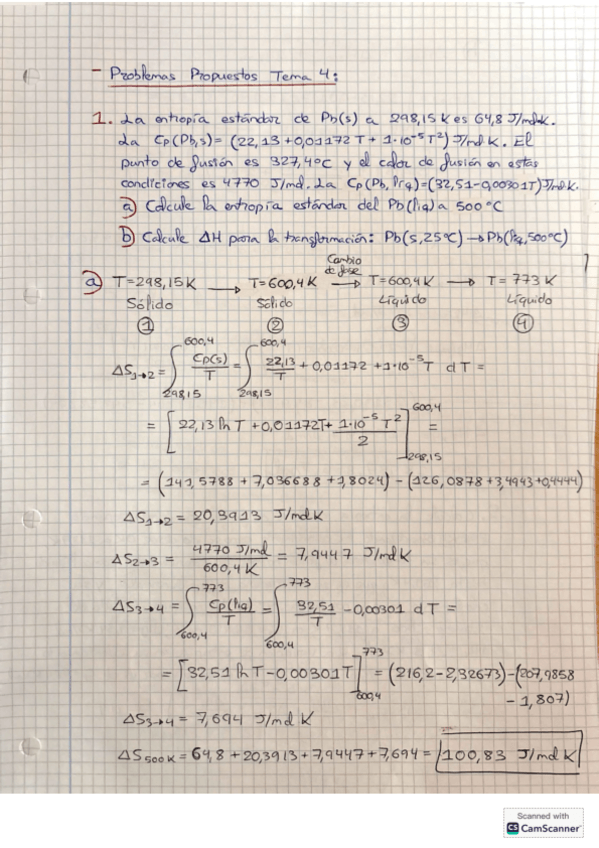 - Problemas Propuestos Tema 4:
1. La entropía estándar de Pb(s) a 298,15 K es 64,8 J/mol·K.
La Cp(Pb,s) = (22,13 + 0,01172 T + 1·10⁻⁵ T²) J/mol K. El
punto de fusión es 327,4ºC y el calor de fusión en estas
condiciones es 4770 J/mol. La Cp(Pb, líq) = (32,51 - 0,00301T) J/mol K.
a) Calcule la entropía estándar del Pb(líq) a 500ºC
b) Calcule ΔH para la transformación: Pb(s, 25ºC) → Pb(líq, 500ºC)
Cambio
de fase
a) T = 298,15 K → T = 600,4 K → T = 600,4 K → T = 773 K
Sólido Sólido Líquido Líquido
① ② ③ ④
ΔS₁→₂ = ∫_{298,15}^{600,4} Cp(s)/T = ∫_{298,15}^{600,4} 22,13/T + 0,01172 + 1·10⁻⁵ T dT =
= [22,13 ln T + 0,01172T + 1·10⁻⁵ T²/2]_{298,15}^{600,4} =
= (141,5788 + 7,036688 + 1,8024) - (126,0878 + 3,4943 + 0,4444)
ΔS₁→₂ = 20,3913 J/mol K
ΔS₂→₃ = 4770 J/mol / 600,4 K = 7,9447 J/mol K
ΔS₃→₄ = ∫_{600,4}^{773} Cp(líq)/T = ∫_{600,4}^{773} 32,51/T - 0,00301 dT =
= [32,51 ln T - 0,00301T]_{600,4}^{773} = (216,2 - 2,32673) - (207,9858
- 1,807)
ΔS₃→₄ = 7,694 J/mol K
ΔS₅₀₀ K = 64,8 + 20,3913 + 7,9447 + 7,694 = 100,83 J/mol K
Scanned with
CS CamScanner